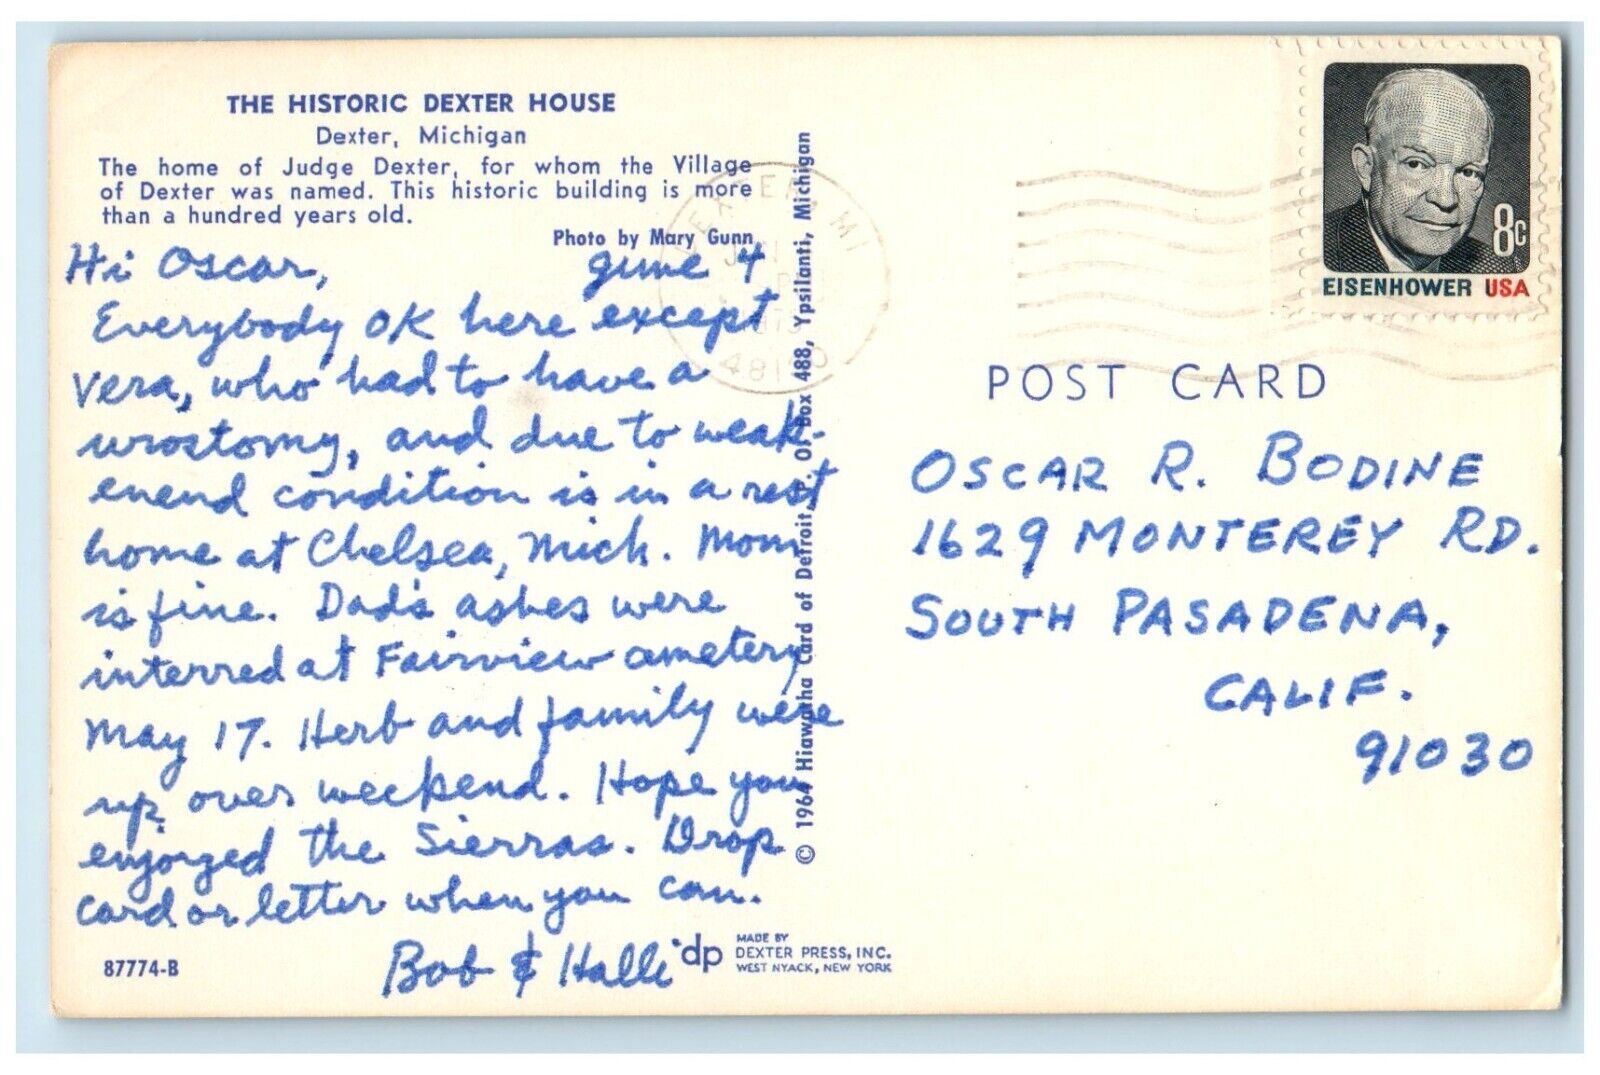 THE HISTORIC DEXTER HOUSE
Dexter, Michigan
The home of Judge Dexter, for whom the Village
of Dexter was named. This historic building is more
than a hundred years old.
Photo by Mary Gunn
Hi Oscar, June 4
Everybody OK here except
Vera, who had to have a
urostomy, and due to weak-
enend condition is in a rest
home at Chelsea, Mich. Mom
is fine. Dad's ashes were
interred at Fairview cemetery
May 17. Herb and family were
up over weekend. Hope you
enjoyed the Sierras. Drop
card or letter when you can.
Bob & Halli
87774-B
dp
MADE BY
DEXTER PRESS, INC.
WEST NYACK, NEW YORK
© 1964 Hiawatha Card of Detroit, P. O. Box 488, Ypsilanti, Michigan
DEXTER MI
JUN
PM
48130
8c
EISENHOWER USA
POST CARD
OSCAR R. BODINE
1629 MONTEREY RD.
SOUTH PASADENA,
CALIF.
91030